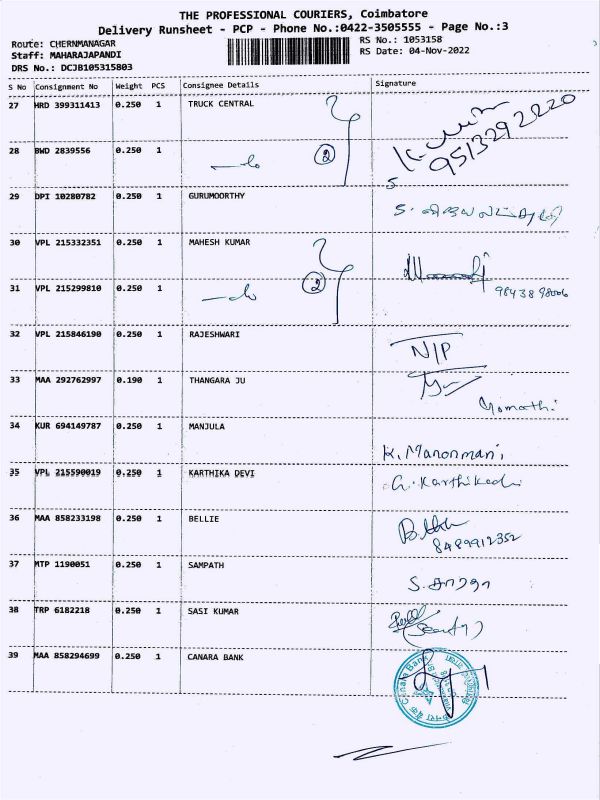 THE PROFESSIONAL COURIERS, Coimbatore
Delivery Runsheet - PCP - Phone No.:0422-3505555 - Page No.:3
Route: CHERNMANAGAR
RS No.: 1053158
Staff: MAHARAJAPANDI
RS Date: 04-Nov-2022
DRS No.: DCJB105315803
S No Consignment No Weight PCS Consignee Details Signature
27 HRD 399311413 0.250 1 TRUCK CENTRAL
9513292220
28 BWD 2839556 0.250 1 do 2
29 DPI 10280782 0.250 1 GURUMOORTHY
30 VPL 215332351 0.250 1 MAHESH KUMAR
31 VPL 215299810 0.250 1 do 2
9843898006
32 VPL 215846190 0.250 1 RAJESHWARI N/P
33 MAA 292762997 0.190 1 THANGARA JU
Gomathi
34 KUR 694149787 0.250 1 MANJULA K. Manonmani
35 VPL 215590019 0.250 1 KARTHIKA DEVI
36 MAA 858233198 0.250 1 BELLIE
8489912352
37 MTP 1190051 0.250 1 SAMPATH
38 TRP 6182218 0.250 1 SASI KUMAR
39 MAA 858294699 0.250 1 CANARA BANK
Canara Bank